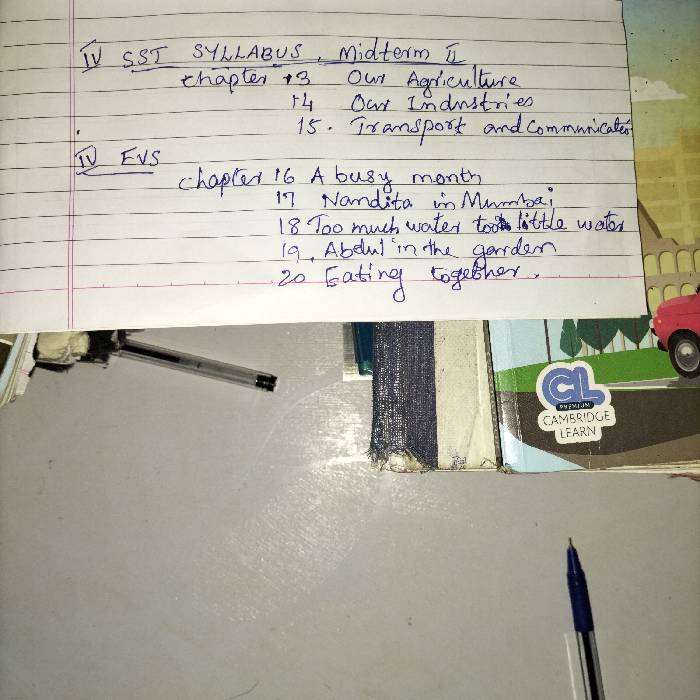 IV SST SYLLABUS, Midterm II
Chapter 13 Our Agriculture
14 Our Industries
15. Transport and Communication
IV EVS
Chapter 16 A busy month
17 Nandita in Mumbai
18 Too much water too little water
19. Abdul in the garden
20 Eating together.
CL
PREMIUM
CAMBRIDGE
LEARN